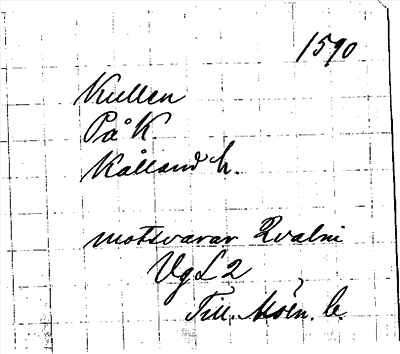 1590
Kullen
På K.
Kålland h.
motsvarar Qvalni
Vg L 2
Till.